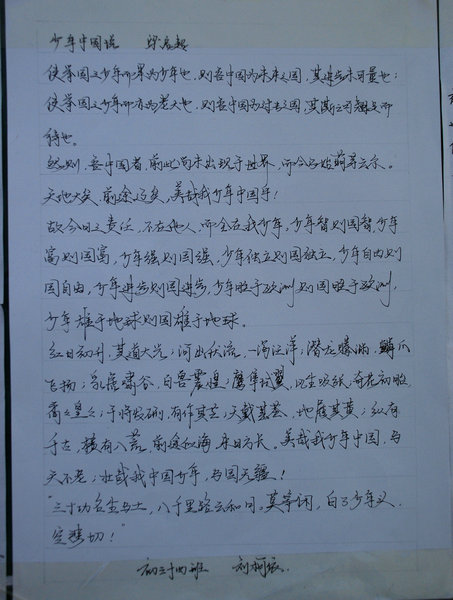 少年中国说 梁启超
使举国之少年而果为少年也，则吾中国为未来之国，其进步未可量也；
使举国之少年而亦为老大也，则吾中国为过去之国，其澌亡可翘足而
待也。
然则，吾中国者，前此尚未出现于世界，而今乃始萌芽云尔。
天地大矣，前途辽矣，美哉我少年中国乎！
故今日之责任，不在他人，而全在我少年，少年智则国智，少年
富则国富，少年强则国强，少年独立则国独立，少年自由则
国自由，少年进步则国进步，少年胜于欧洲则国胜于欧洲，
少年雄于地球则国雄于地球。
红日初升，其道大光；河出伏流，一泻汪洋；潜龙腾渊，鳞爪
飞扬；乳虎啸谷，百兽震惶；鹰隼试翼，风尘吸张；奇花初胎，
矞矞皇皇；干将发硎，有作其芒；天戴其苍，地履其黄；纵有
千古，横有八荒，前途似海，来日方长。美哉我少年中国，与
天不老；壮哉我中国少年，与国无疆！
“三十功名尘与土，八千里路云和月。莫等闲，白了少年头，
空悲切！”
初三十四班 刘柯